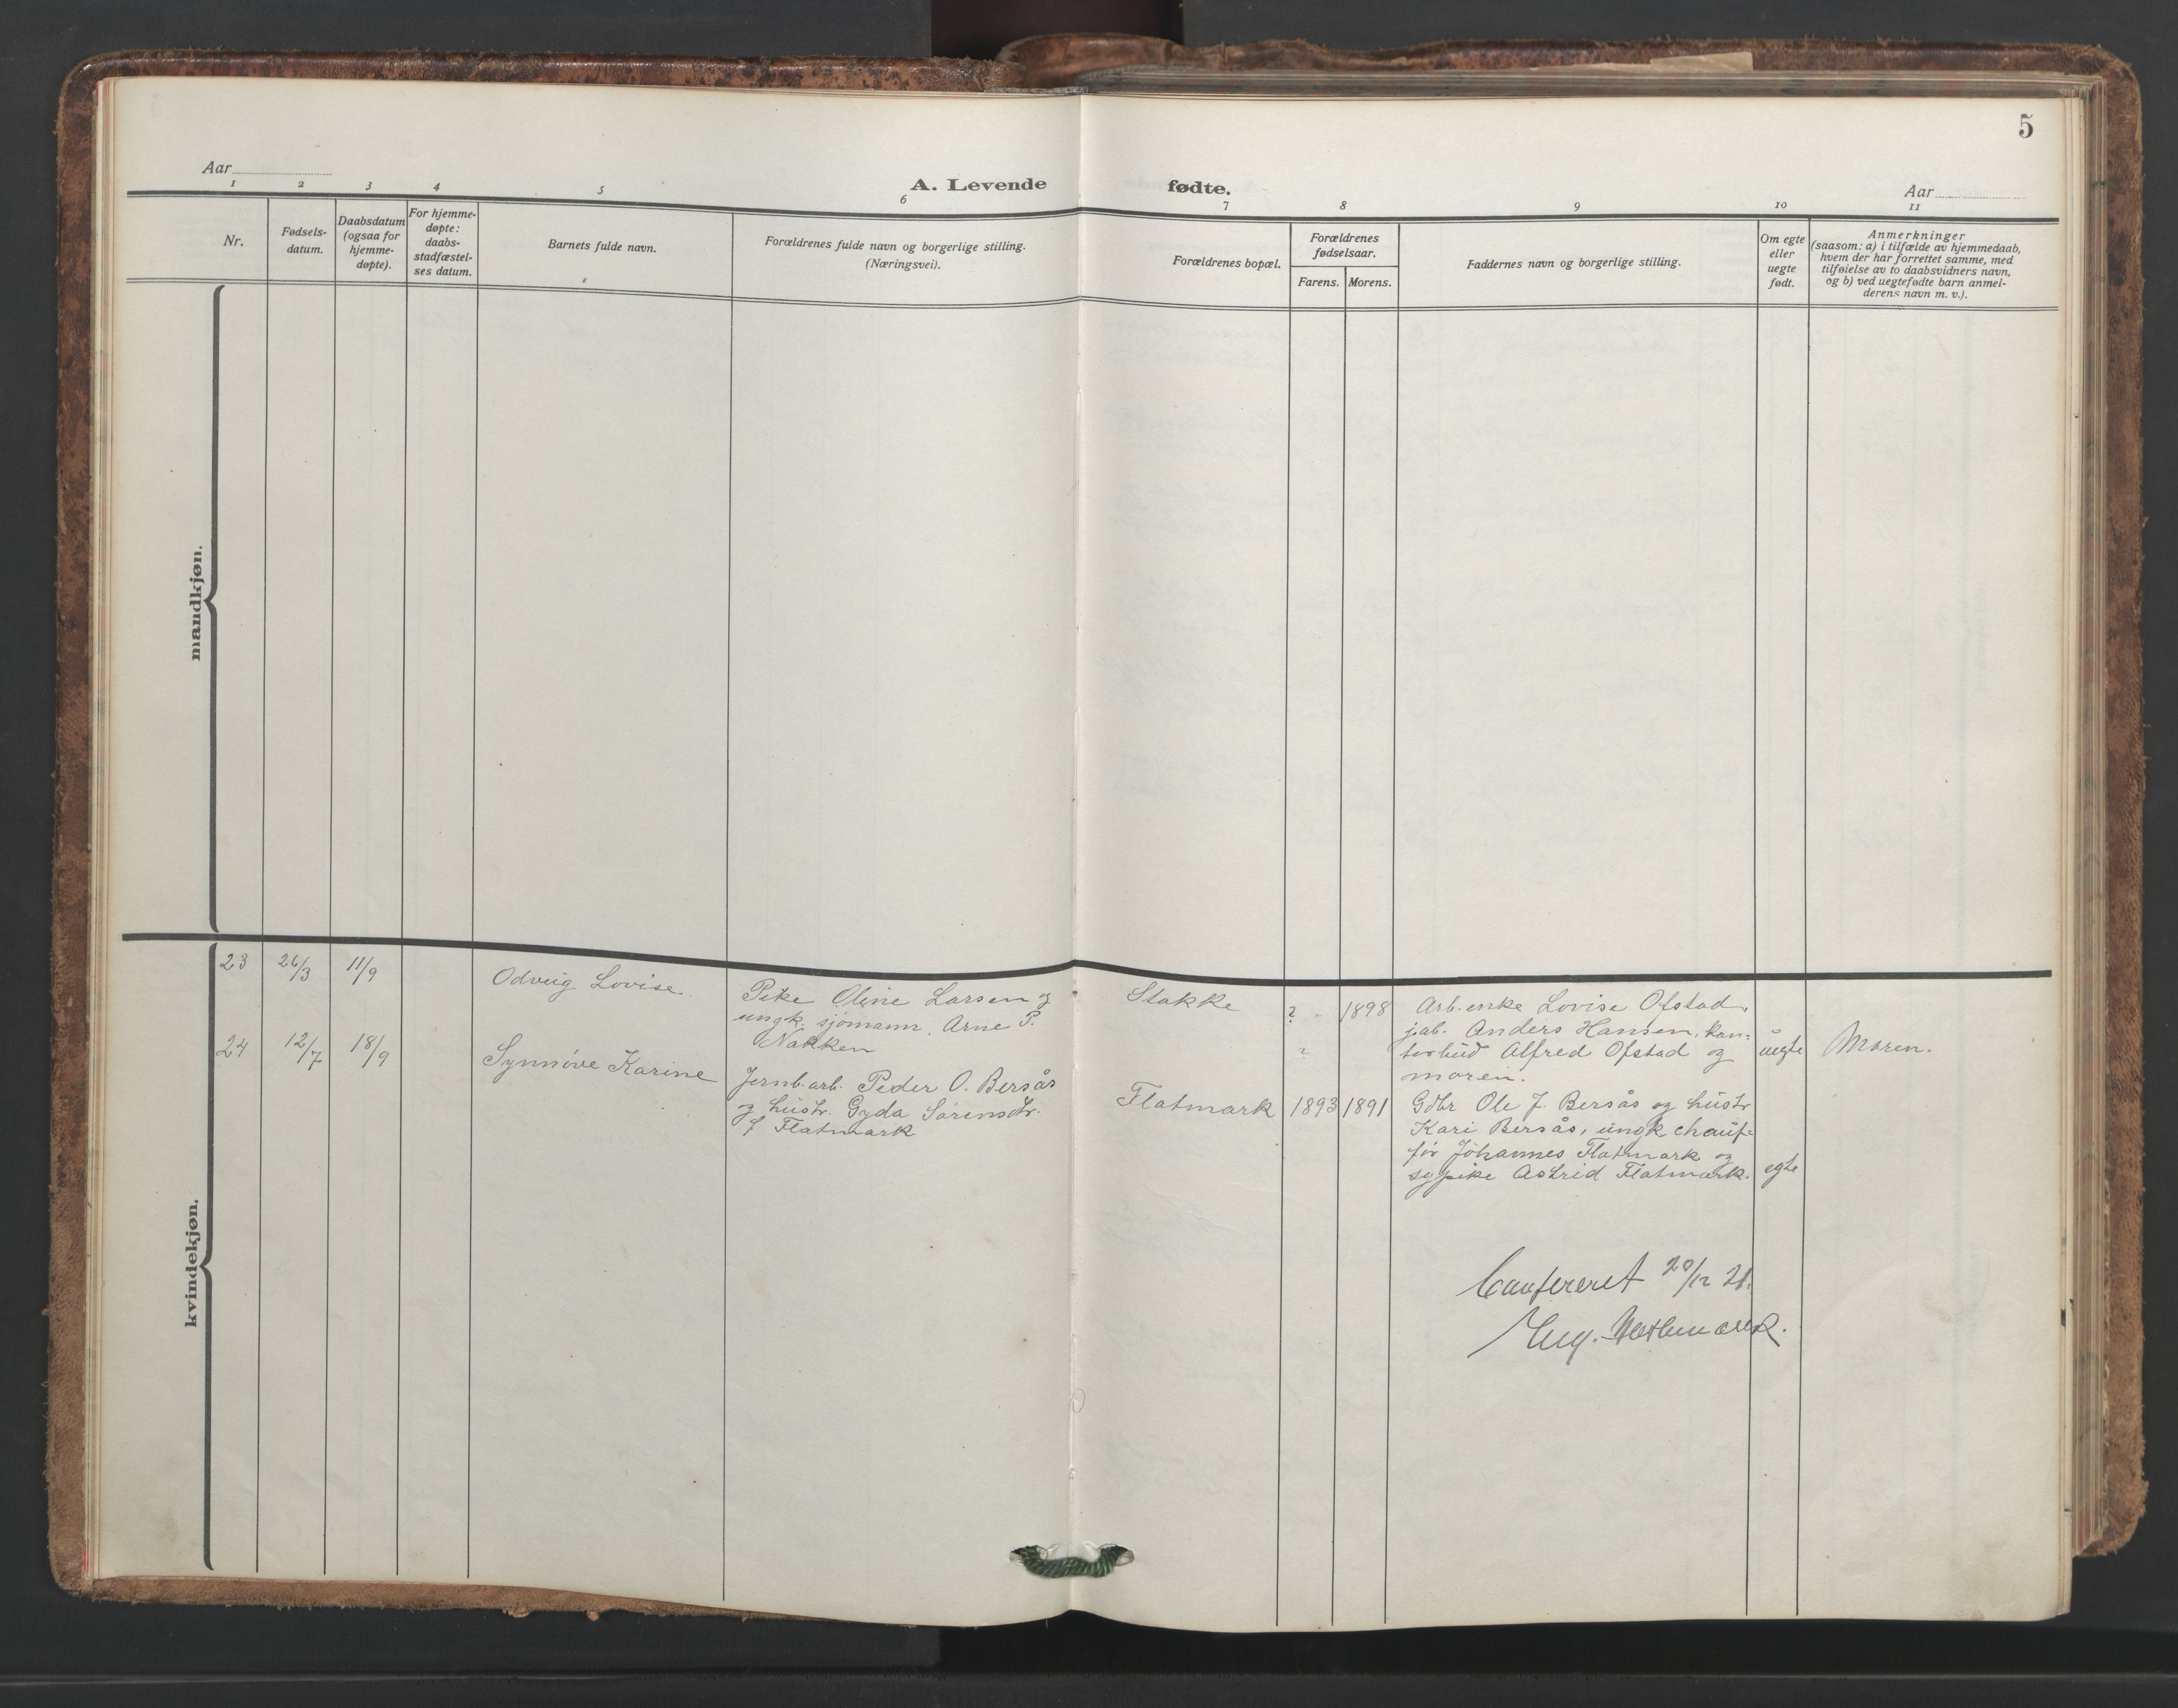 5
Aar
A. Levende fødte.
Aar
1 2 3 4 5 6 7 8 9 10 11
Nr.
Fødsels-
datum.
Daabsdatum
(ogsaa for
hjemme-
døpte).
For hjemme-
døpte:
daabs-
stadfæstel-
ses datum.
Barnets fulde navn.
Forældrenes fulde navn og borgerlige stilling.
(Næringsvei).
Forældrenes bopæl.
Forældrenes
fødselsaar.
Farens. Morens.
Faddernes navn og borgerlige stilling.
Om egte
eller
uegte
født.
Anmerkninger
(saasom: a) i tilfælde av hjemmedaab,
hvem der har forrettet samme, med
tilføielse av to daabsvidners navn,
og b) ved uegtefødte barn anmel-
derens navn m. v.).
mandkjøn.
kvindekjøn.
23 26/3 11/9
Odveig Lovise
Pike Oline Larsen og
ungk. sjömann. Arne P.
Nakken
Stakke
? 1898
?
Arb.enke Lovise Ofstad,
jab. Anders Hansen, kon=
torbud Alfred Ofstad og
moren.
uegte
Moren.
24 12/7 18/9
Synnöve Karine
Jernb.arb. Peder O. Bersås
og hustr. Gyda Sörensdtr.
f Flatmark
Flatmark
1893 1891
Gdbr Ole J. Bersås og hustr
Kari Bersås, ungk chauf=
för Johannes Flatmark og
sypike Astrid Flatmark.
egte
Confereret 20/12 21.